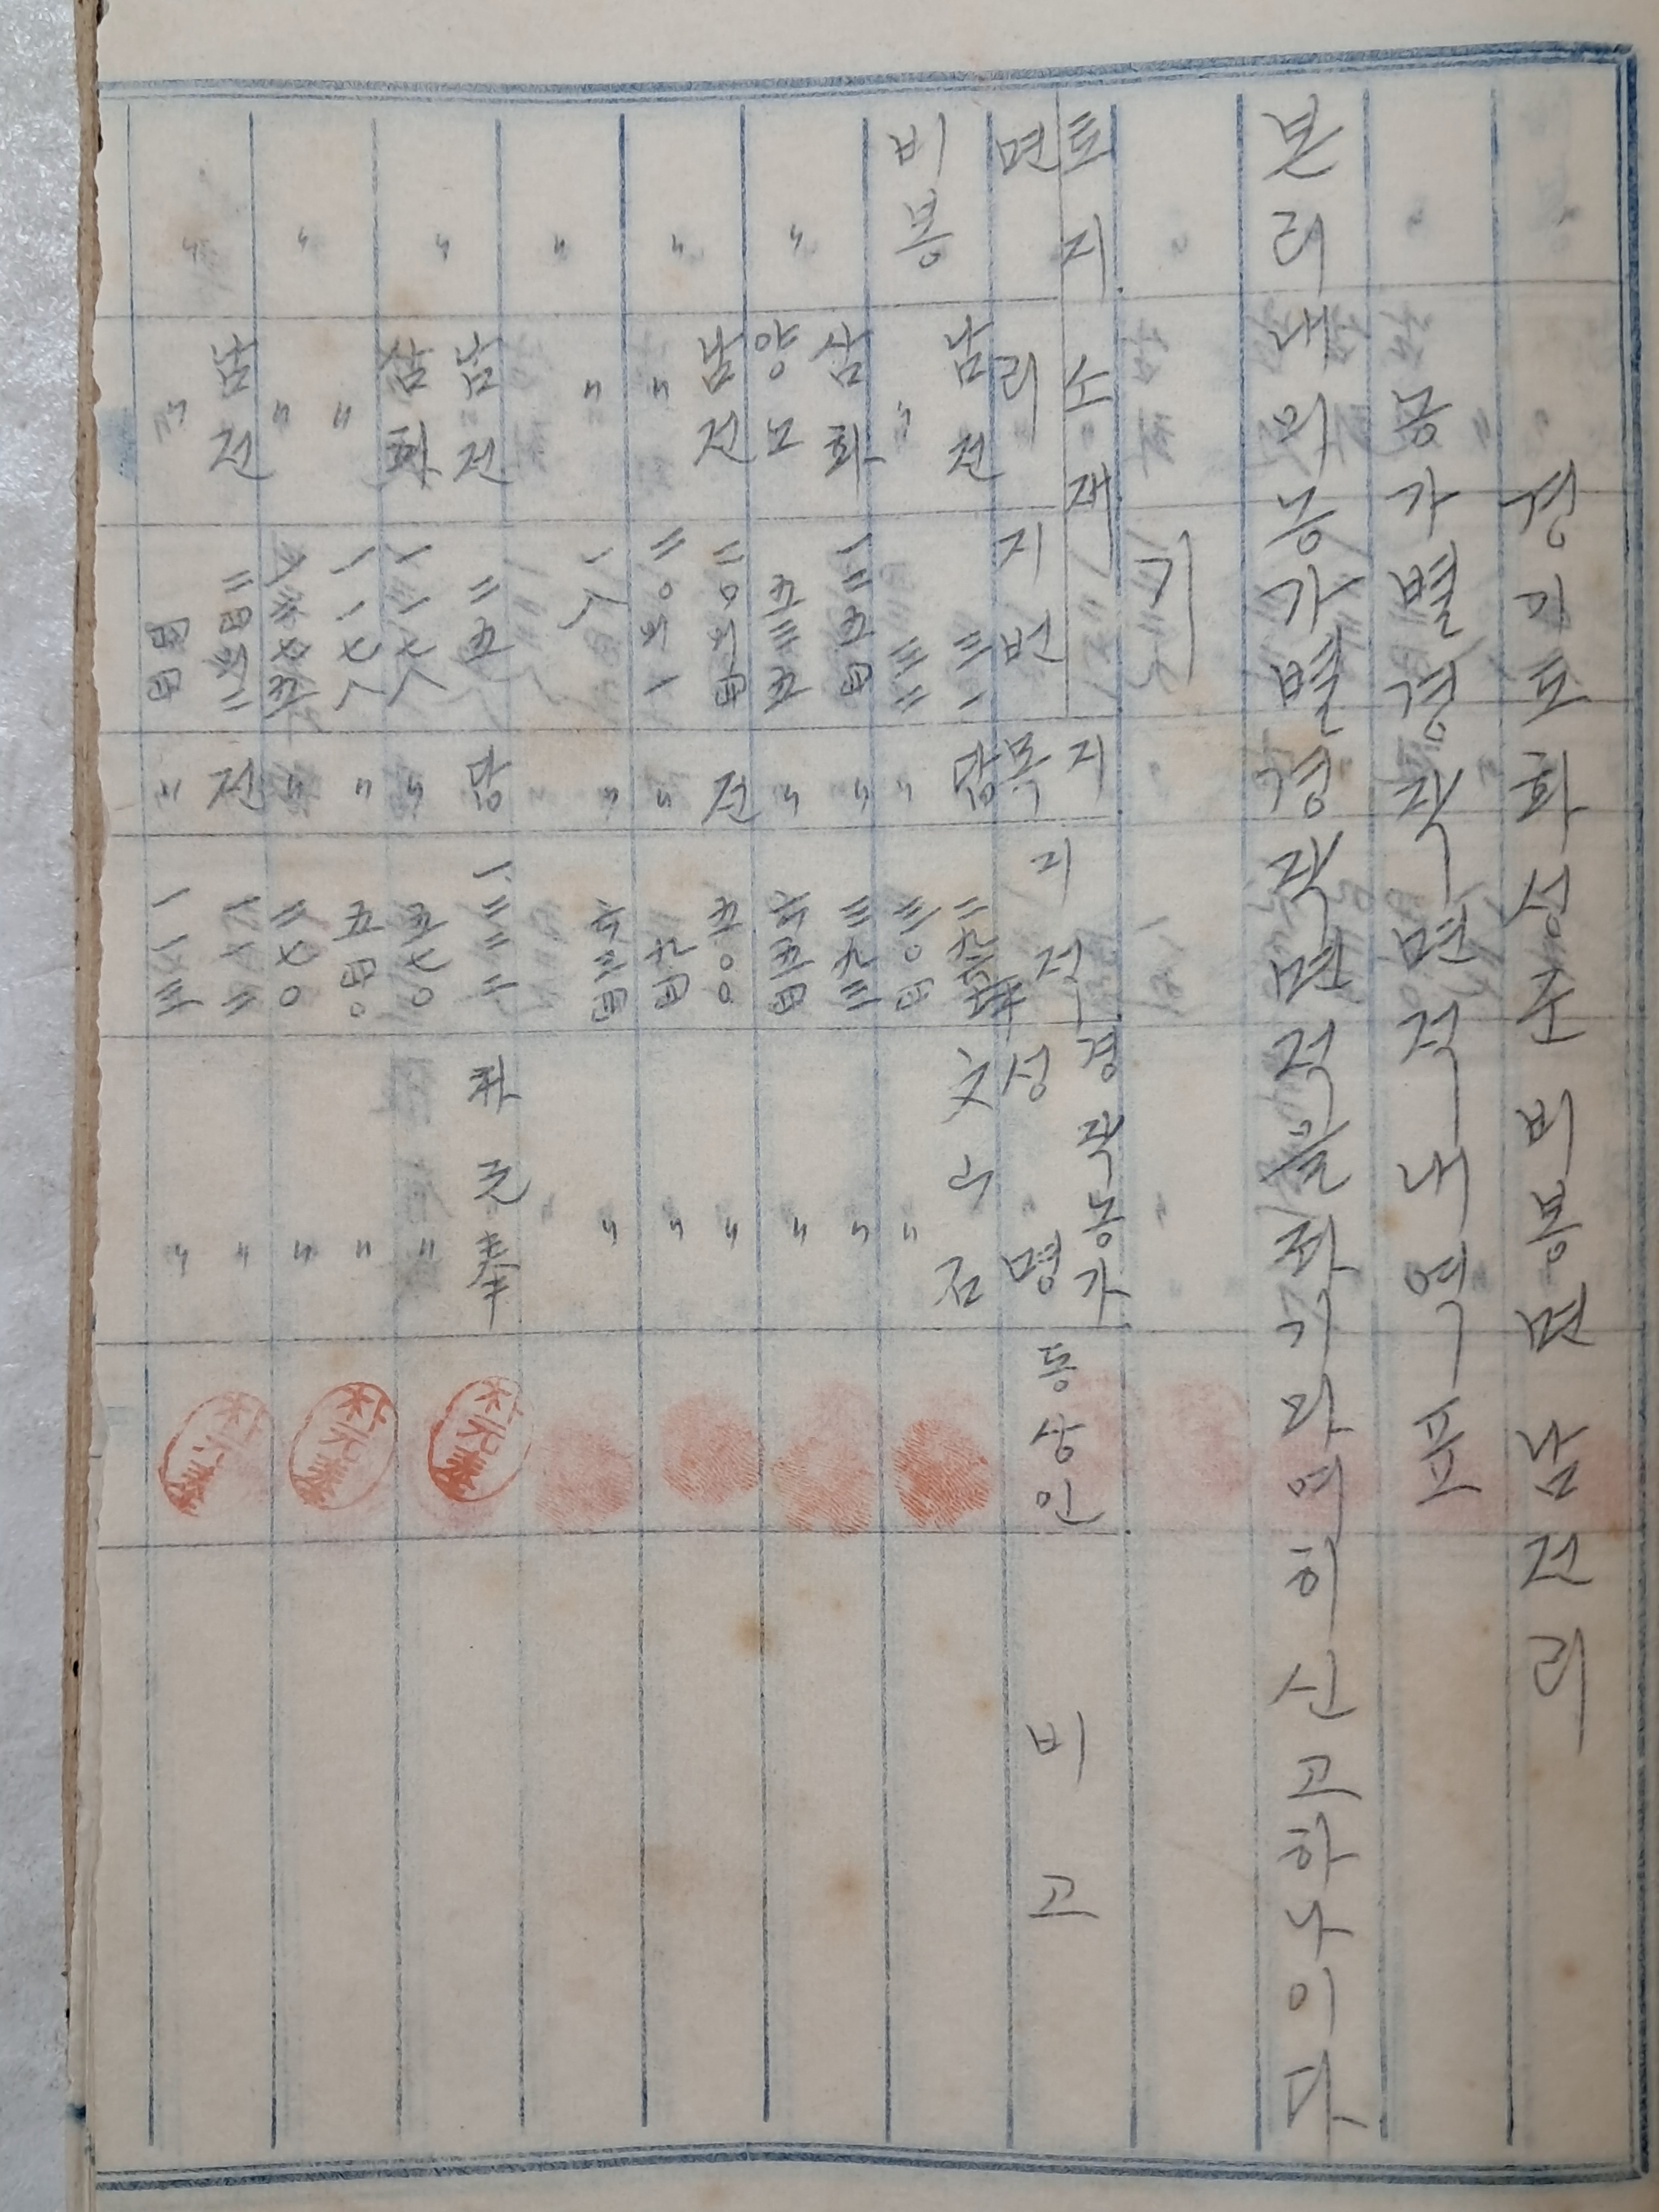 경기도화성군비봉면남전리
농가별경작면적내역표
본리내의농가별경작면적을좌기와여히신고하나이다
기
토지소재 지목 지적 경작농가성명 동상인 비고
면 리 지번
비봉 남전 답 文
〃 〃 〃 〃
삼화 一二五四 〃 三九三 〃
〃 양노 五三五 〃 六五四 〃
남전 二〇외四 전 五〇〇 〃
〃 〃 二〇외一 〃 九四 〃
〃 〃 一八 〃 六三四 〃
〃 남전 二五 답 朴元奉
삼화 一一七八 〃 五七〇 〃
〃 一一七八 〃 五四〇 〃
〃 〃 〃 二七〇 〃
남전 二四외二 전 一七二 〃
〃 〃 四四 〃 一一三 〃